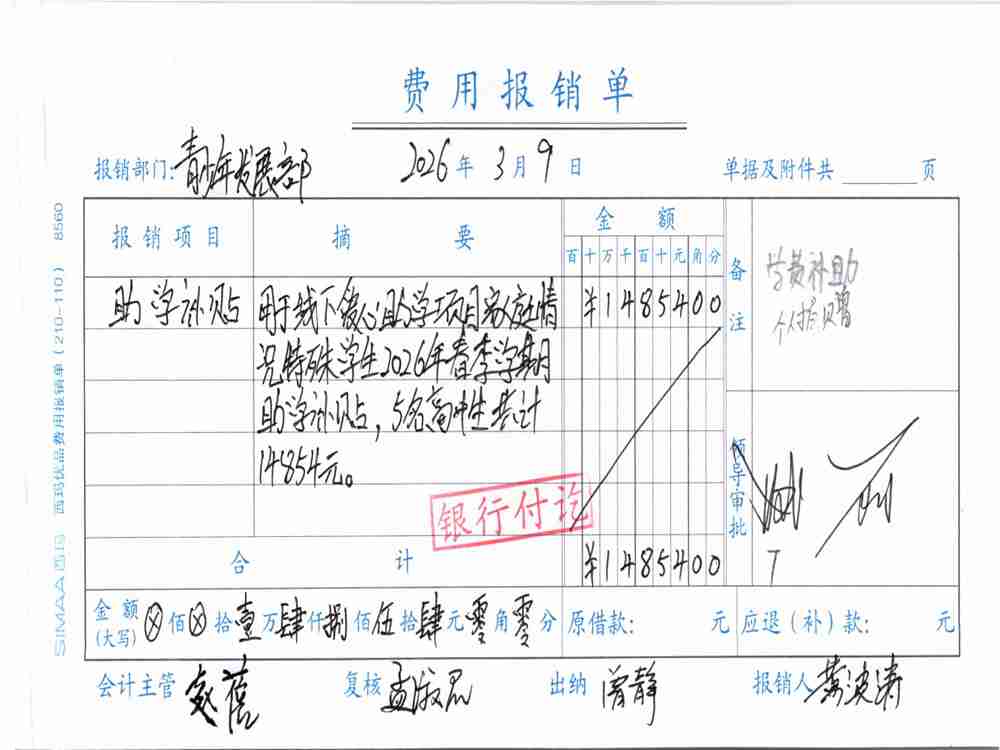 费用报销单
报销部门:青少年发展部 2026年3月9日 单据及附件共 页
报销项目 摘要 金额 备注
百十万千百十元角分
助学补贴 用于线下爱心助学项目家庭情 ¥1485400 学费补助
况特殊学生2026年春季学期 个人捐赠
助学补贴,5名高中生共计
14854元。
银行付讫
领导审批
合计 ¥1485400
金额(大写) ⊗佰⊗拾壹万肆仟捌佰伍拾肆元零角零分 原借款: 元 应退(补)款: 元
会计主管 复核 孟淑君 出纳 曾静 报销人 黄波涛
SIMAA西玛 西玛优品费用报销单(210-110) 8560